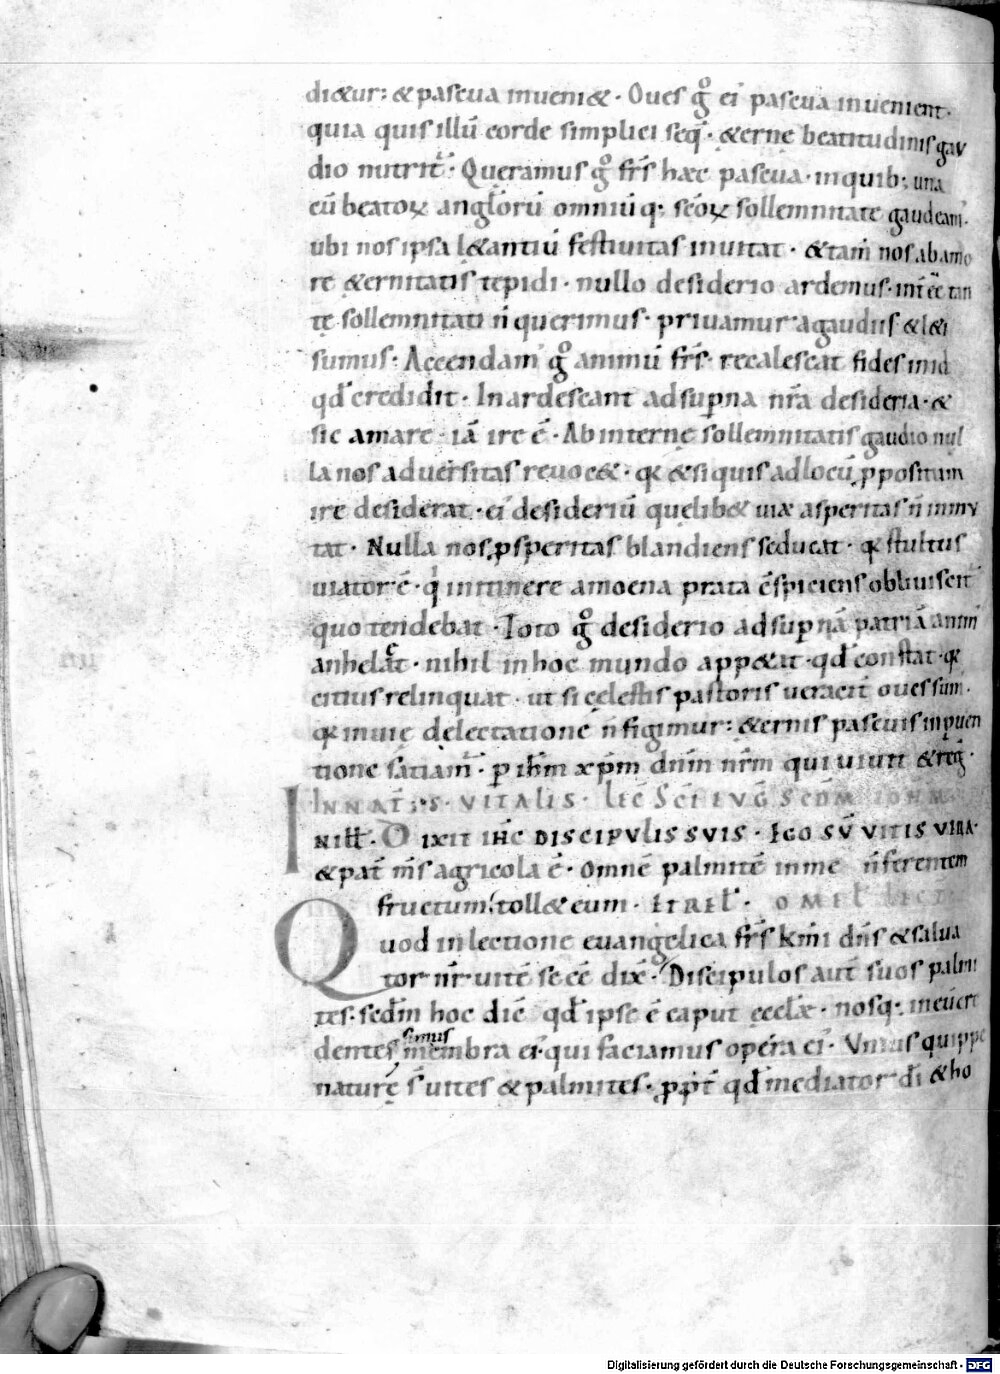 di&ur: & pascua inueni&. Oues g̊ ei᾽ pascua inuenient.
quia quisillū corde simplici seq̄t᾽. &ernę beatitudinis gau
dio nutrit᾽. Queramus g̊ fr̄s haec pascua. inquib; una
cū beatoꝝ angl̄orū omniū q; sc̄oꝝ sollemnitate gaudeam᾽.
ubi nos ipsa l&antiū festiuitas inuitat. &tam̄ nos abamo
re &ernitatis tepidi. nullo desiderio ardemus. int̄eē tan
tę sollemnitati n̄ querimus. priuamur agaudiis & l&i
sumus. Accendam᾽ g̊ animū fr̄s. recalescat fides inid
qd̄ credidit. Inardescant adsupna nr̄a desideria. &
sic amare. iā ire ē. Abinternę sollemnitatis gaudio nul
la nos aduersitas reuoc&. q& &siquis adlocū ꝓpositum
ire desiderat. ei᾽ desideriū quelib& uiae asperitas n̄ inmu
tat. Nulla nos ꝓsperitas blandiens seducat. q& stultus
uiator ē. q̇ initinere amoena prata c̄spiciens obliuiscit᾽
quo tendebat. Toto g̊ desiderio adsupnā patriā anim᾽
anhelat. nihil inhoc mundo app&it. qd̄ constat. q&
citius relinquat. ut si cęlestis pastoris ueracit̄ oues sum᾽.
q& inuię delectatione n̄ figimur: &ernis pascuis inꝑuen
tione satiam᾽. ꝑ ih̄m xp̄m dn̄m nr̄m qui uiuit & reḡ.
INNAT̄ S. VITALIS. LEC̄ SC̄I EVḠ SCDM̄ IOHM̄.
IN ILL̄. DIXIT IHC̄ DISCIPVLIS SVIS. EGO SV̄ VITIS VERA.
& pat̄ m̄s agricola ē. Omnē palmitē inme n̄ferentem
fructum: toll& eum. ET REL̄. OMEL̄ LECT.
Quod inlectione euangelica fr̄s kmi dn̄s & salua
tor nr̄ uitē se eē dix̄. Discipulos aut̄ suos palmi
tes: scdm̄ hoc dic̄ qd̄ ipse ē caput ecclae. nosq; ineū cre
dentes simus membra ei᾽. qui faciamus opera ei᾽. Vnius quippe
naturę s̄ uites & palmites. ꝓpt̄ qd̄ mediator dī & ho
Digitalisierung gefördert durch die Deutsche Forschungsgemeinschaft - DFG